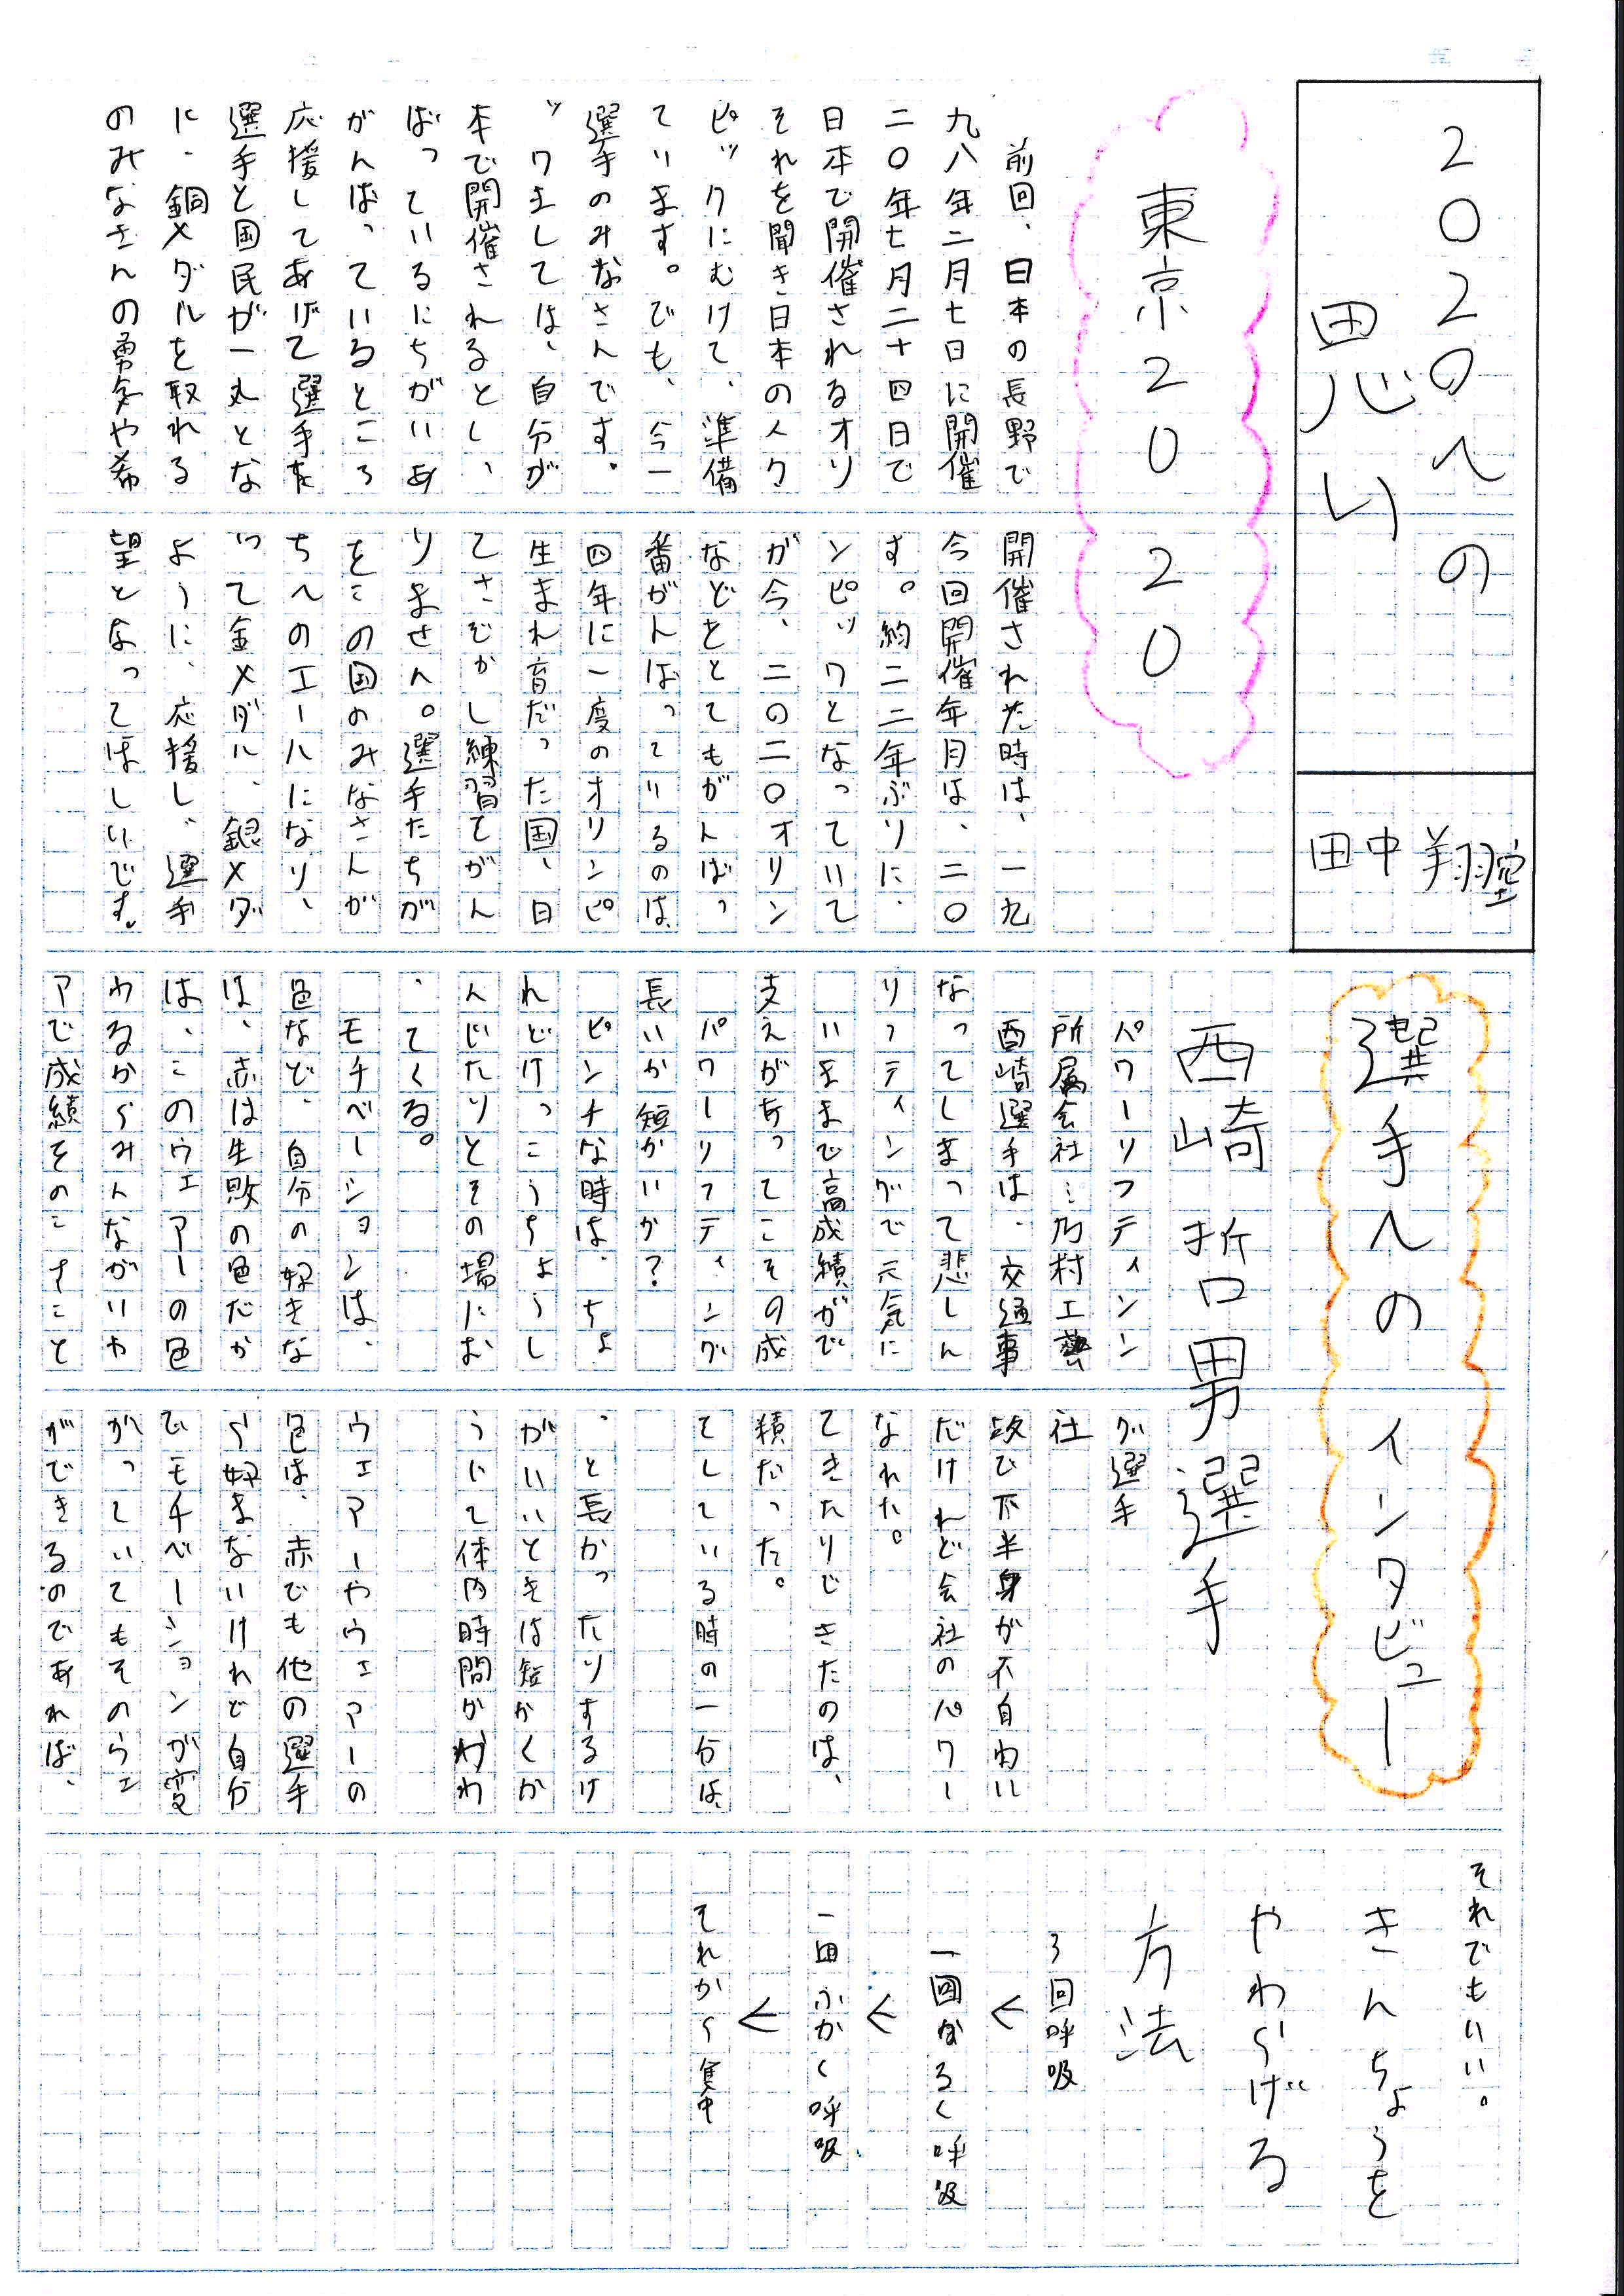 2020への
思い
田中翔
東京2020
前回、日本の長野で開催された時は、一九
九八年二月七日に開催今回開催年月は、二〇
二〇年七月二十四日です。約二二年ぶりに、
日本で開催されるオリンピックとなっていて
それを聞き日本の人々が今、二〇二〇オリン
ピックにむけて、準備などをとてもがんばっ
ています。でも、今一番がんばっているのは、
選手のみなさんです。四年に一度のオリンピ
ックましては、自分が生まれ育だった国、日
本で開催されるとし、てさぞかし練習てがん
ばっているにちがいありません。選手たちが
がんばっているところをこの国のみなさんが
応援してあげて選手たちへのエールになり、
選手と国民が一丸となって金メダル、銀メダ
に、銅メダルを取れるように、応援し、選手
のみなさんの勇気や希望となってほしいです。
選手へのインタビュー
西崎哲男選手
パワーリフティング選手
所属会社…乃村工藝社
西崎選手は、交通事故で下半身が不自由に
なってしまって悲しんだけれど会社のパワー
リフティングで元気になれた。
いままで高成績がでてきたりじきたのは、
支えがあってこその成績だった。
パワーリフティングてしている時の一分は、
長いか短かいか?
ピンチな時は、ちょっと長かったりするけ
れどけっこうちょうしがいいときは短かくか
んじたりとその場におうじて体内時間がかわ
ってくる。
モチベーションは、ウェアーやウェアーの
色など、自分の好きな色は、赤でも他の選手
は、赤は失敗の色だから好まないけれど自分
は、このウェアーの色でモチベーションが変
わるからみんながいやがっていてもそのウェ
アで成績をのこすことができるのであれば、
それでもいい。
きんちょうを
やわらげる
方法
3回呼吸
↓
一回かるく呼吸
↓
一回ふかく呼吸
↓
それから集中